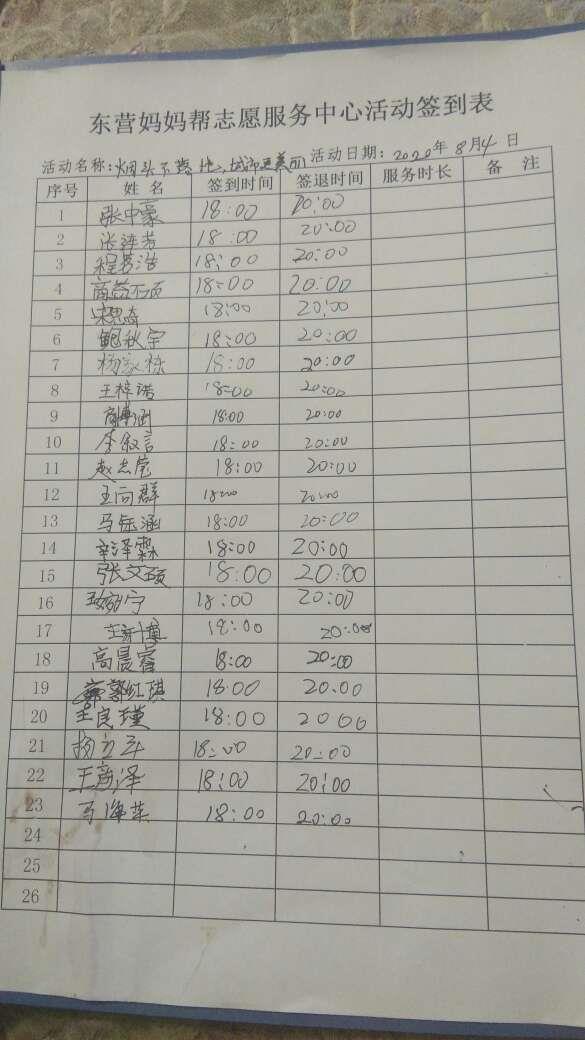 东营妈妈帮志愿服务中心活动签到表
活动名称:烟头不落地,城市更美丽 活动日期:2020年8月4日
序号 姓名 签到时间 签退时间 服务时长 备注
1 张中豪 18:00 20:00
2 张萍芳 18:00 20:00
3 程茗浩 18:00 20:00
4 商 18:00 20:00
5 宋思奇 18:00 20:00
6 鲍秋宇 18:00 20:00
7 杨家栋 18:00 20:00
8 王梓诺 18:00 20:00
9 18:00 20:00
10 李叙言 18:00 20:00
11 赵志莹 18:00 20:00
12 王向群 18:00 20:00
13 马钰涵 18:00 20:00
14 辛泽霖 18:00 20:00
15 张文硕 18:00 20:00
16 18:00 20:00
17 18:00 20:00
18 高晨睿 18:00 20:00
19 郭红琪 18:00 20:00
20 王良瑾 18:00 2000
21 18:00 20:00
22 王彦泽 18:00 20:00
23 马海英 18:00 20:00
24
25
26